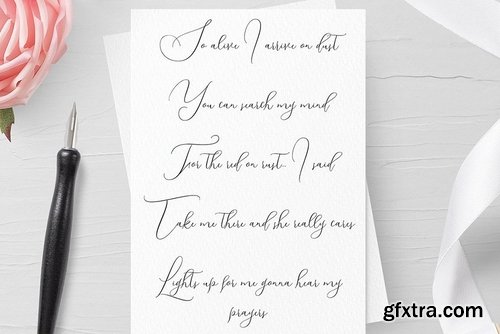 So alive I arrive on dust
You can search my mind
For the red on rust... I said
Take me there and she really cares
Lights up for me gonna hear my
prayers
gfxtra.com